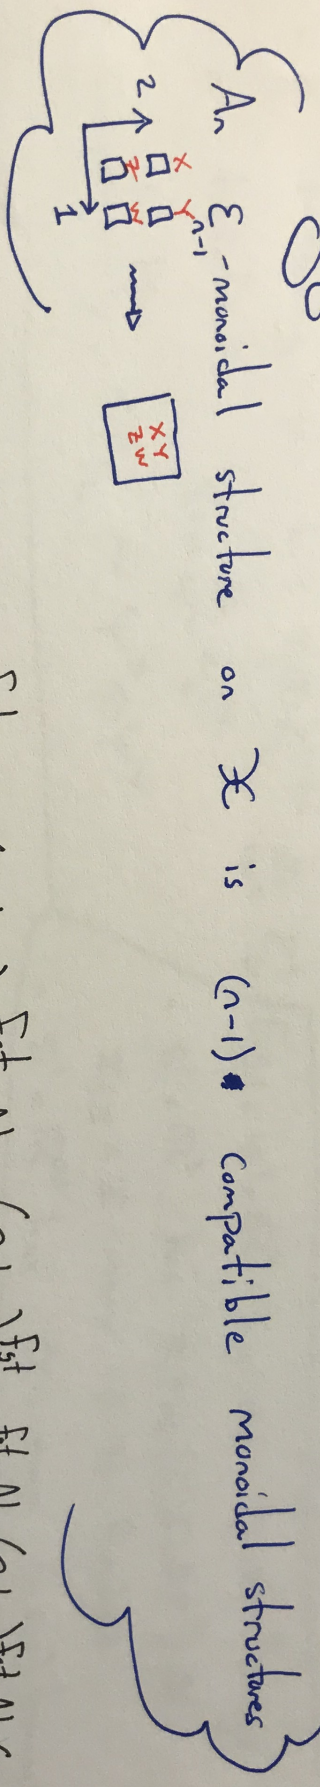 An ℰₙ₋₁-monoidal structure on 𝒳 is (n-1) compatible monoidal structures
2
X Y
Z W
1
X Y
Z W